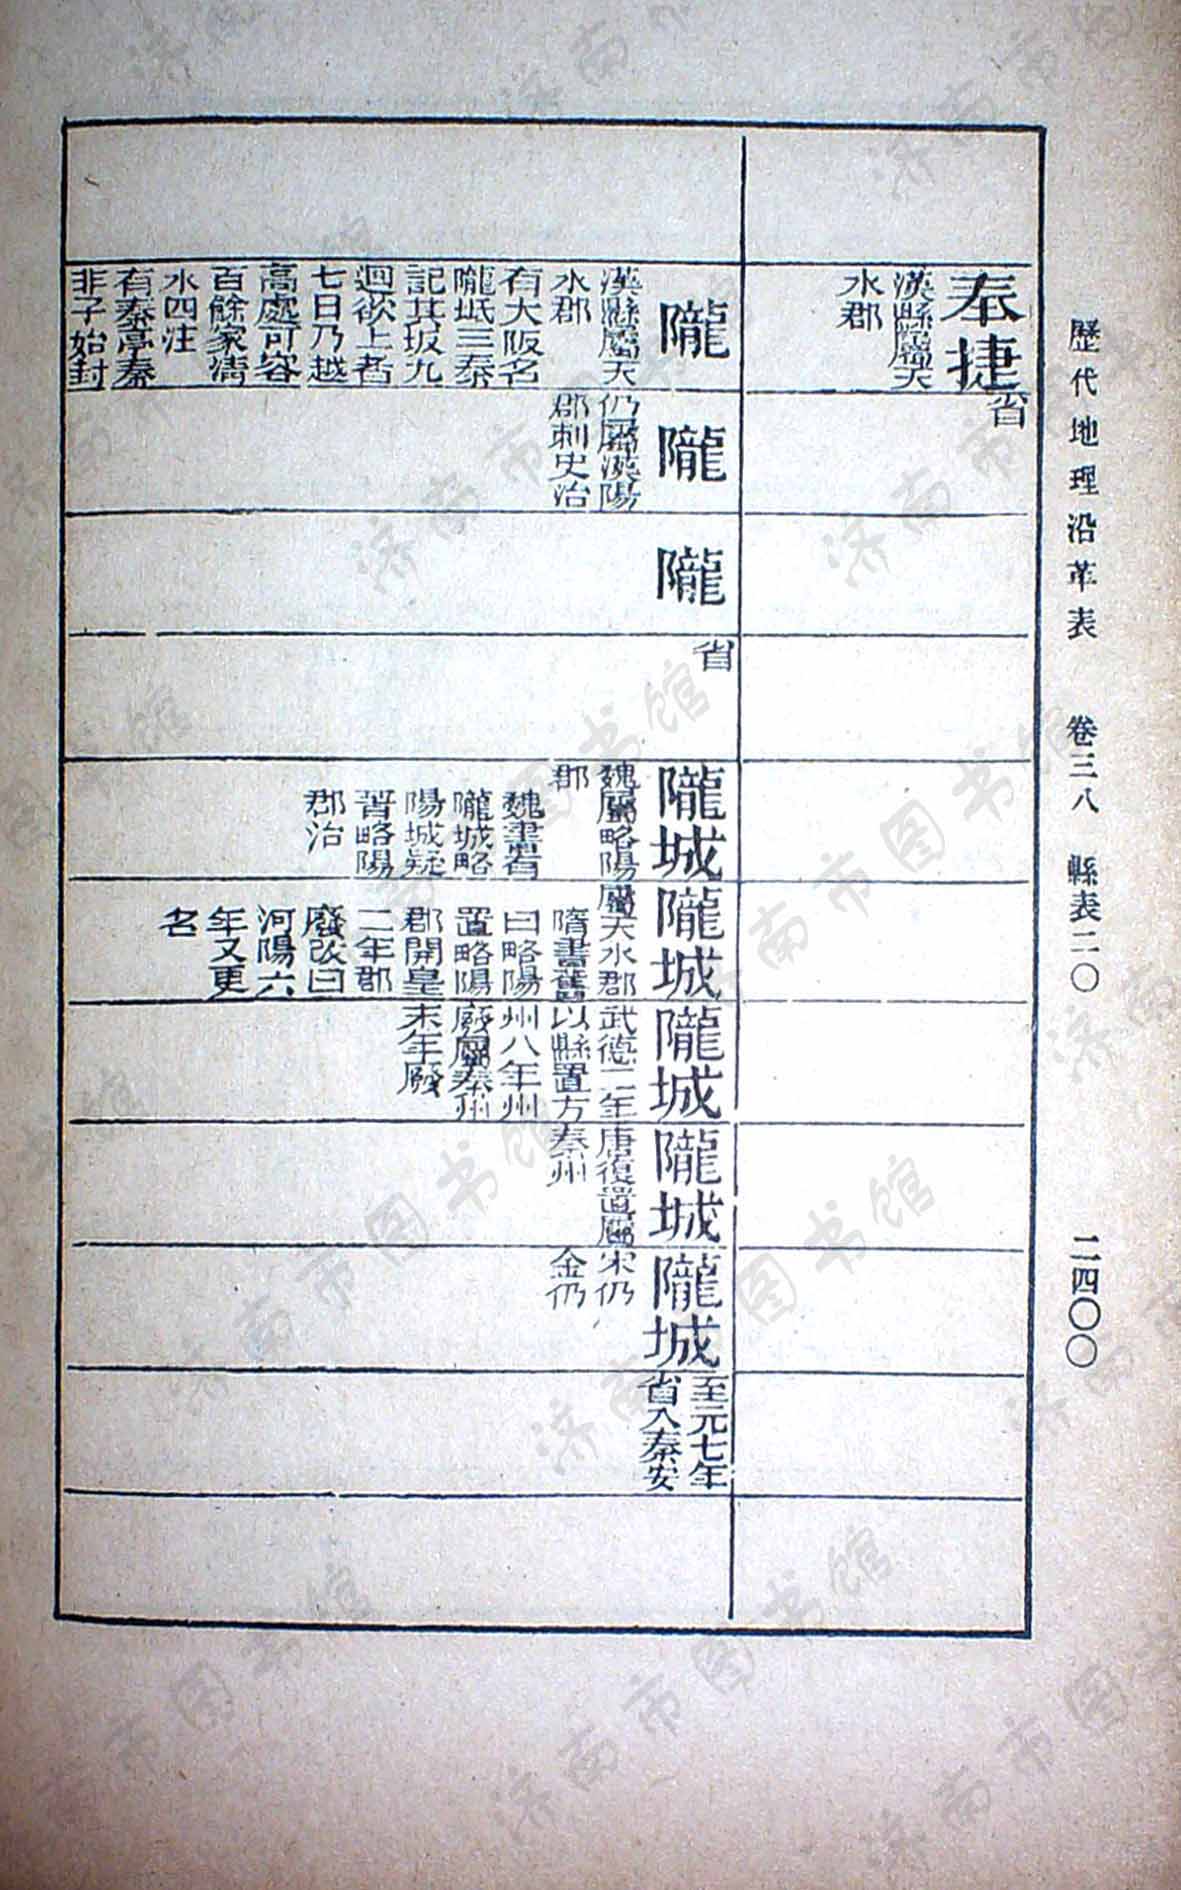 歷代地理沿革表　卷三八　縣表二〇　二四〇〇
奉捷
漢縣屬天
水郡
省
隴
漢縣屬天
水郡
有大阪名
隴坻三秦
記其坂九
迴欲上者
七日乃越
高處可容
百餘家清
水四注
有秦亭秦
非子始封
隴
仍屬漢陽
郡刺史治
隴
省
隴城
魏屬略陽
郡
魏書有
隴城略
陽城疑
晉略陽
郡治
隴城
屬天水郡
隋書舊
曰略陽
置略陽
郡開皇
二年郡
廢改曰
河陽六
年又更
名
隴城
武德二年
以縣置方
州八年州
廢屬秦州
末年廢
隴城
唐復置屬
秦州
隴城
宋仍
金仍
至元七年
省入秦安
济南市图书馆